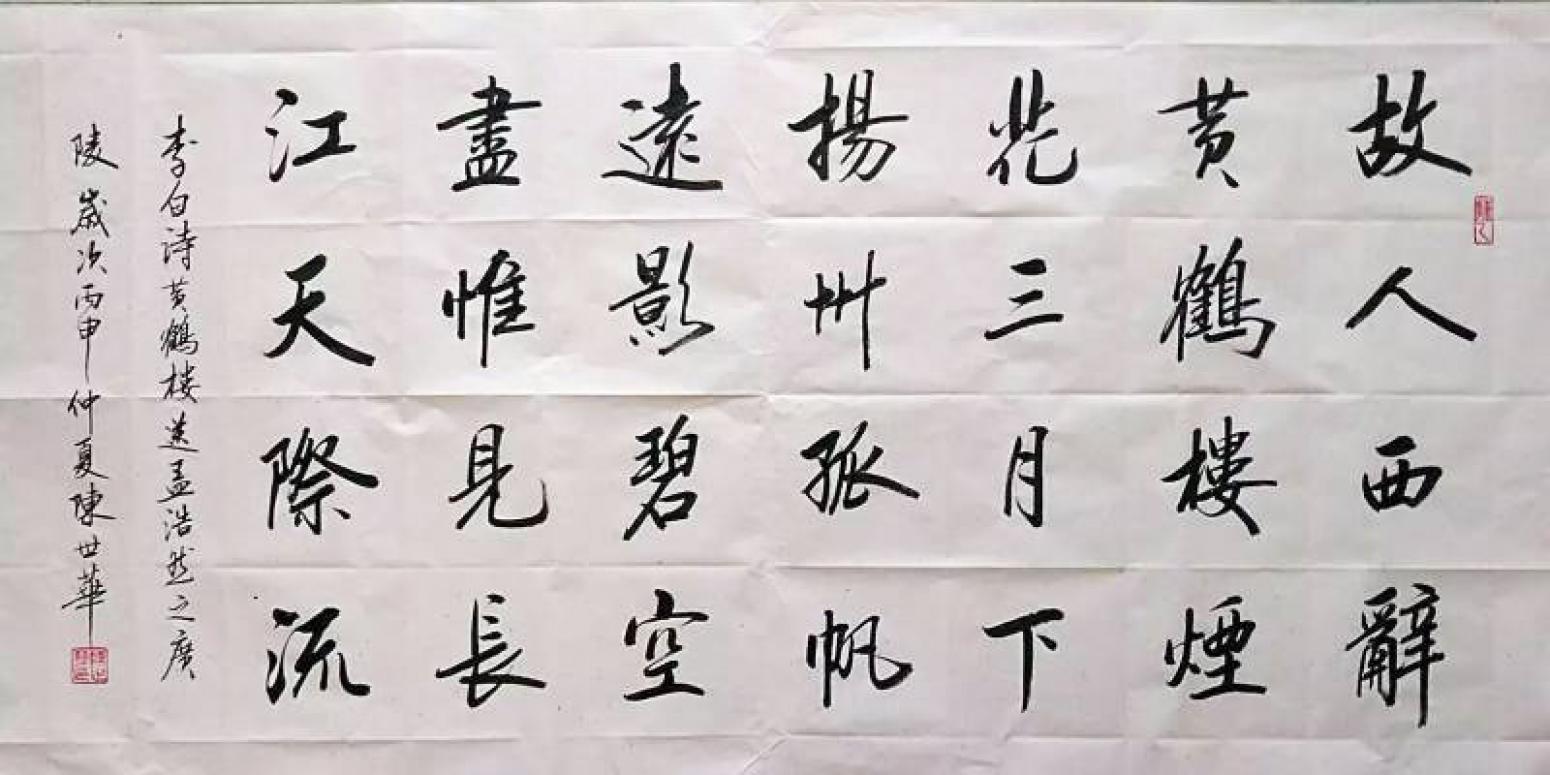 故人西辭
黄鶴樓煙
花三月下
揚州孤帆
遠影碧空
盡惟見長
江天際流
李白诗黄鶴楼送孟浩然之廣
陵歲次丙申仲夏陳世華